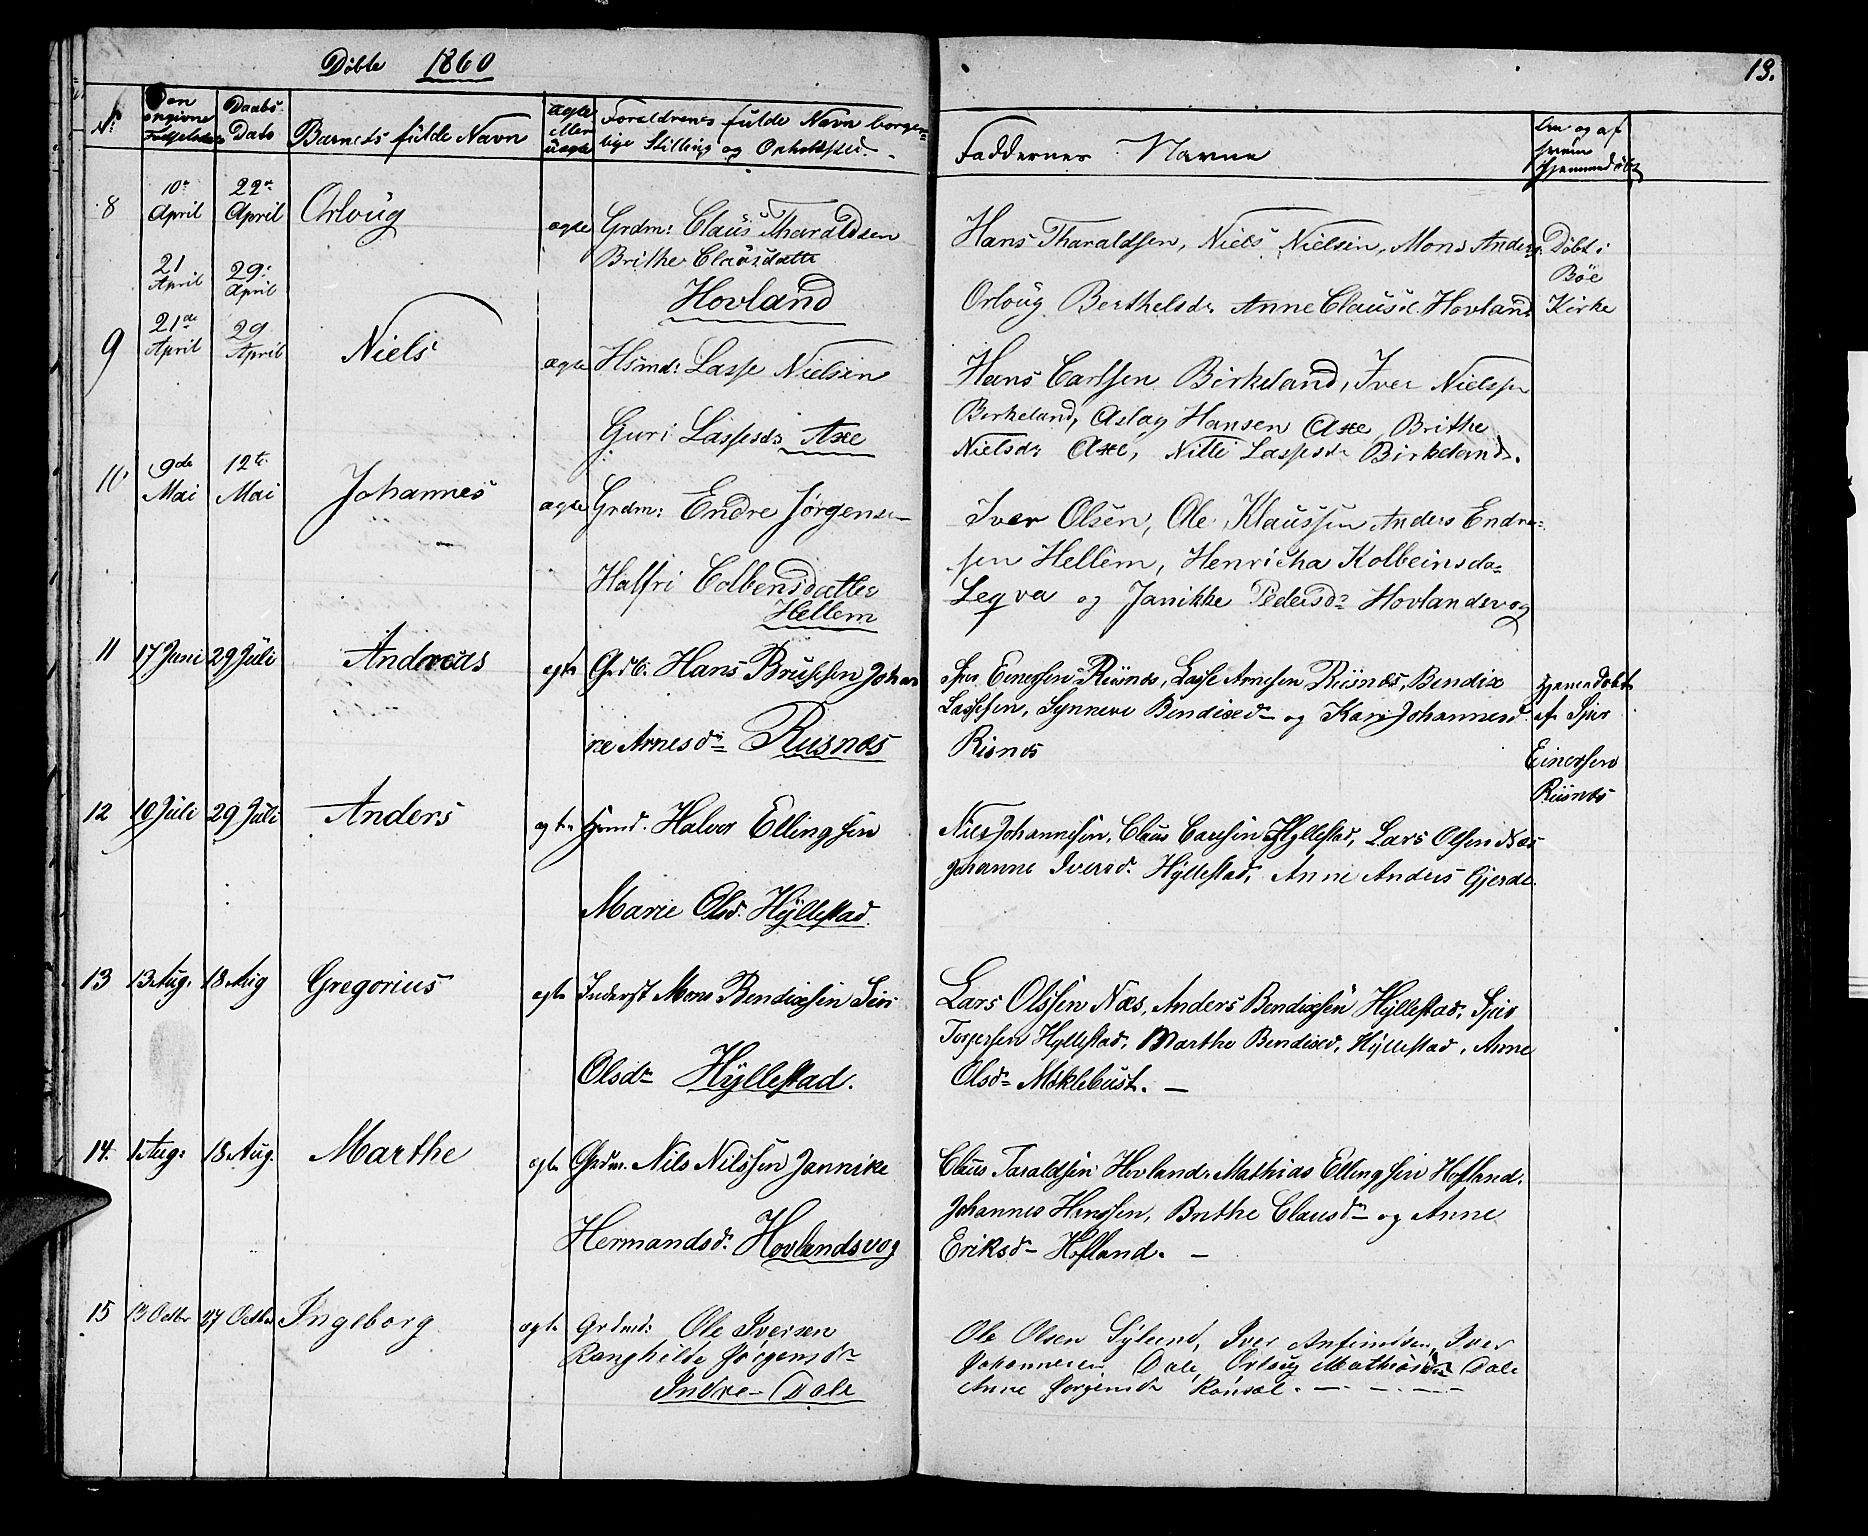 Døbte 1860
13.
No: Den angivne Fødselsdato Daabs Dato Barnets fulde Navn ægte eller uægte Forældrenes fulde Navn borger=
lige Stilling og Opholdsted.
Faddernes Navne
Om og af hvem hjemmedøbt
8 10de April 22de April Orloüg ægte Grdm: Claus Tharaldsen
Brithe Clausdatte
Hovland
21 April 29: April
Hans Tharaldsen, Niels Nielsen, Mons Anders:
Orloüg Berthelsdr Anne Clausd. Hovland
Døbt i
Bøe
Kirke
9 21de April 29 April Niels ægte Hsmd: Lasse Nielsen
Guri Lassesdr Axe
Hans Carlsen Birkeland, Iver Nielsen
Birkeland, Aslag Hansen Axe, Brithe
Nielsdr Axe, Nille Lassesdr Birkeland.
10 9de Mai 12te Mai Johannes ægte Grdm: Endre Jørgensen
Halfri Colbensdatter
Hellem
Iver Olsen, Ole Klaussen Anders Endre=
sen Hellem, Henricha Kolbeinsda=
Leqva og Janikke Pedersdr Hovlandsvog
11 17 Juni 29 Juli Andreas ægte Grdb. Hans Brussen Johan
ne Arnesdr Risnæs
Sjur Einersen Riisnæs, Lasse Arnesen Riisnæs, Bendix
Lassesen, Synneve Bendixdr og Kari Johannesd.
Risnæs
Hjemmedøbt
af Sjur
Einersen
Riisnæs
12 10 Juli 29 Juli Anders ægte Hsmd. Halvor Ellingsen
Marie Olsd. Hÿllestad.
Nils Johannesen, Claus Carlsen Hyllestad, Lars Olsen Næs
Johanne Iversd. Hÿllestad, Anne Anders Gjerde.
13 13 Aug. 18 Aug Gregorius ægte Inderst Mons Bendixsen Siri
Olsdr Hÿllestad.
Lars Olssen Næs, Anders Bendixsen Hÿllestad, Sjur
Torgersen Hyllestad, Marthe Bendixd. Hÿllestad, Anne
Olsdr Myklebust. —
14. 1 Aug: 18 Aug. Marthe ægte Grdm. Nils Nilssen Jannike
Hermandsd. Hovlandsvog
Claus Taraldsen Hovland, Mathias Ellingsen Hofland.
Johannes Hanssen, Brithe Clausdr og Anne
Eriksdr Hofland. —
15 13 Octbr 27 Octbr Ingeborg ægte Grdmd: Ole Iversen
Ranghilde Jørgensdr
Indre Dale
Ole Olsen Sÿlund, Iver Anfindsen, Iver
Johannesen Dale, Orloug Mathiasdr Dale
Anne Jørgensdr Rønsæt. — — — —